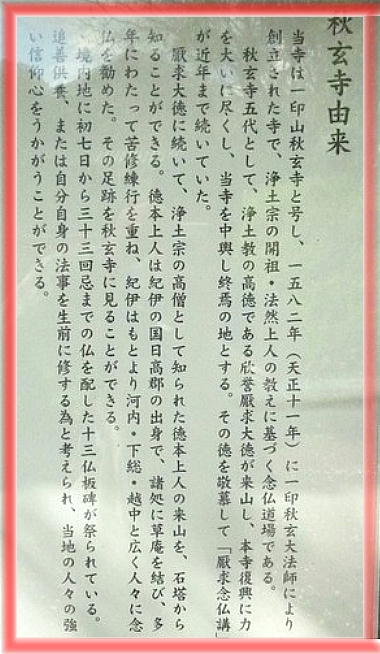 秋玄寺由来
当寺は一印山秋玄寺と号し、一五八二年（天正十一年）に一印秋玄大法師により
創立された寺で、浄土宗の開祖・法然上人の教えに基づく念仏道場である。
秋玄寺五代として、浄土教の高徳である欣誉厭求大徳が来山し、本寺復興に力
を大いに尽くし、当寺を中興し終焉の地とする。その徳を敬慕して「厭求念仏講」
が近年まで続いていた。
厭求大徳に続いて、浄土宗の高僧として知られた徳本上人の来山を、石塔から
知ることができる。徳本上人は紀伊の国日高郡の出身で、諸処に草庵を結び、多
年にわたって苦修練行を重ね、紀伊はもとより河内・下総・越中と広く人々に念
仏を勧めた。その足跡を秋玄寺に見ることができる。
境内地に初七日から三十三回忌までの仏を配した十三仏板碑が祭られている。
追善供養、または自分自身の法事を生前に修する為と考えられ、当地の人々の強
い信仰心をうかがうことができる。